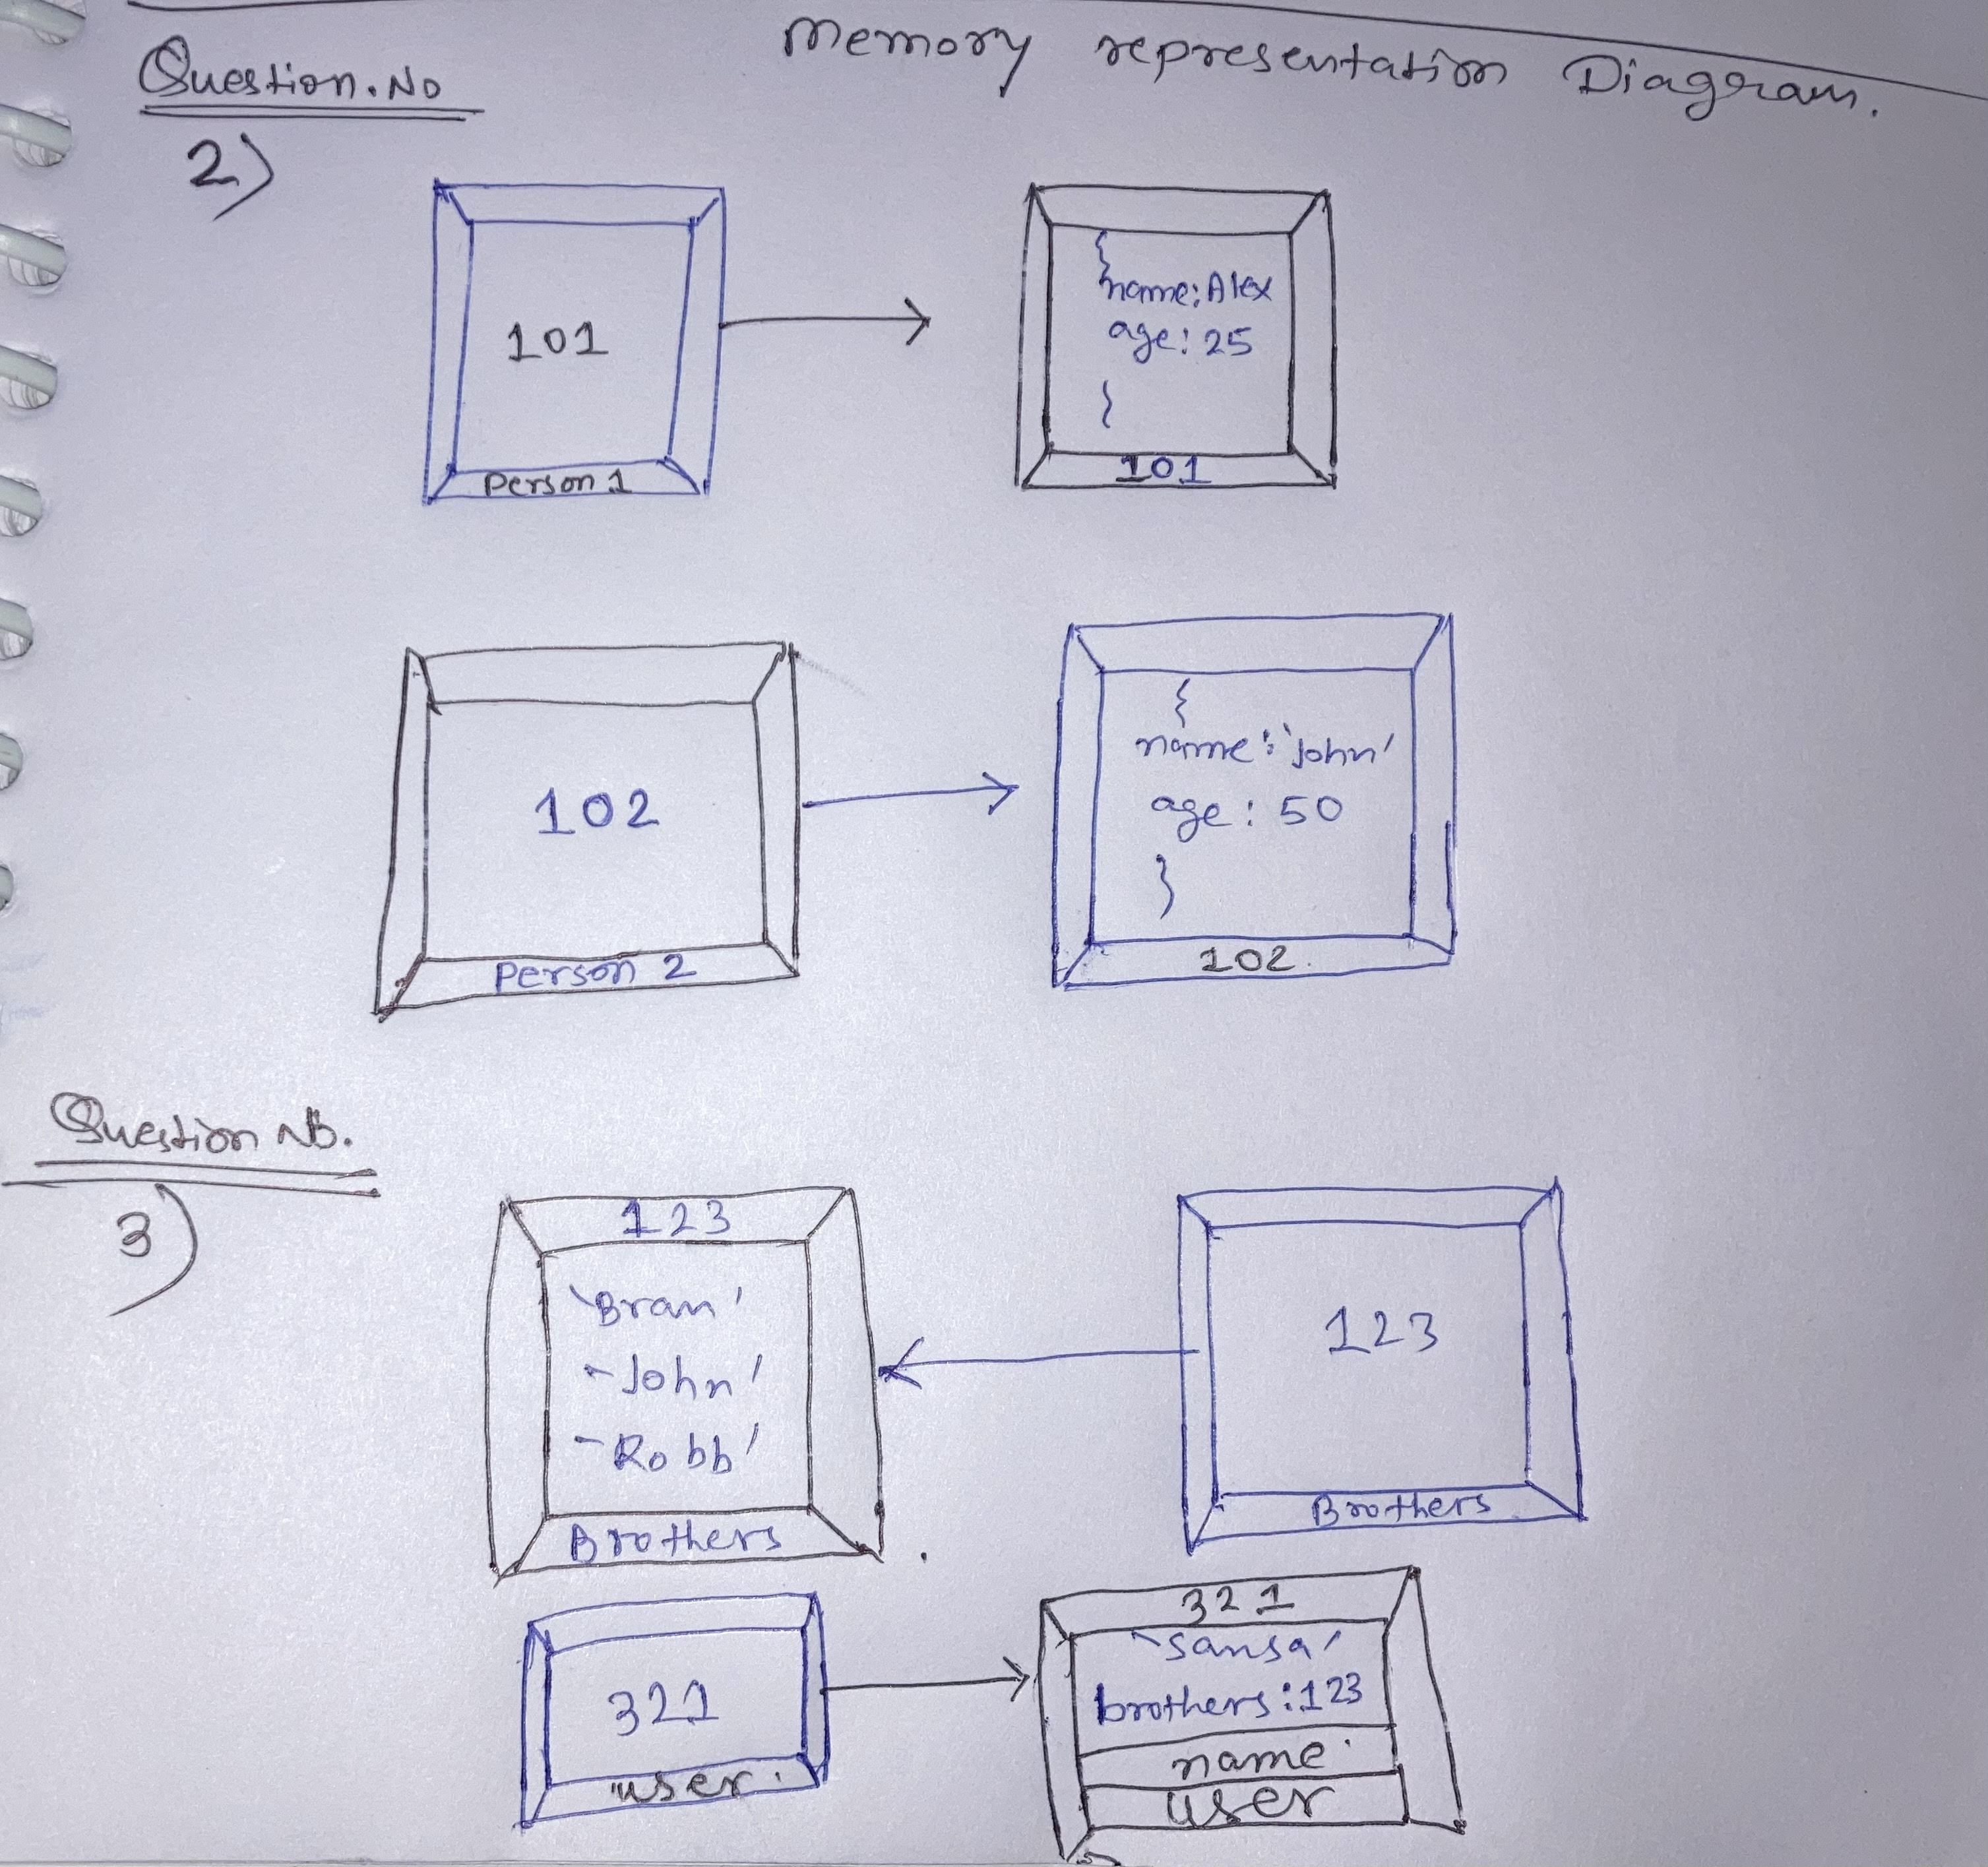 Memory representation Diagram.
Question. No
2)
101
Person 1
{
name: Alex
age: 25
}
101
102
Person 2
{
name: 'John'
age: 50
}
102
Question No.
3)
123
'Bran'
'John'
'Robb'
Brothers
123
Brothers
321
user.
321
'sansa'
brothers: 123
name
user